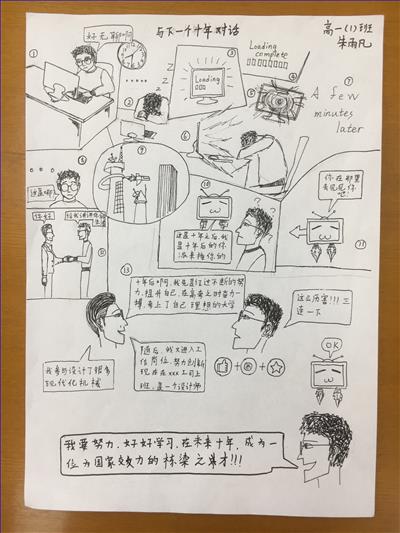 与下一个十年对话
高一(1)班
朱雨凡
①
好无聊啊
②
z
z
z
③
Loading
④
Loading
complete
⑤
⑥
⑦
A few
minutes
later
⑧
这是哪?
⑨
⑩
这是十年之后,我
是十年后的你
派来接你的
? ?
⑪
你在那里
去见见你
吧
⑫
你好
⑬
十年后啊,我先是经过不断的努
力,提升自己,在高考之时奋力一
搏,考上了自己理想的大学
随后,我又进入工
作岗位,努力创新
现在在xxx公司上
班,是一个设计师
我参与设计了很多
现代化机械
这么厉害!!!三
连一下
+
+
OK
我要努力,好好学习,在未来十年,成为一
位为国家效力的栋梁之才!!!